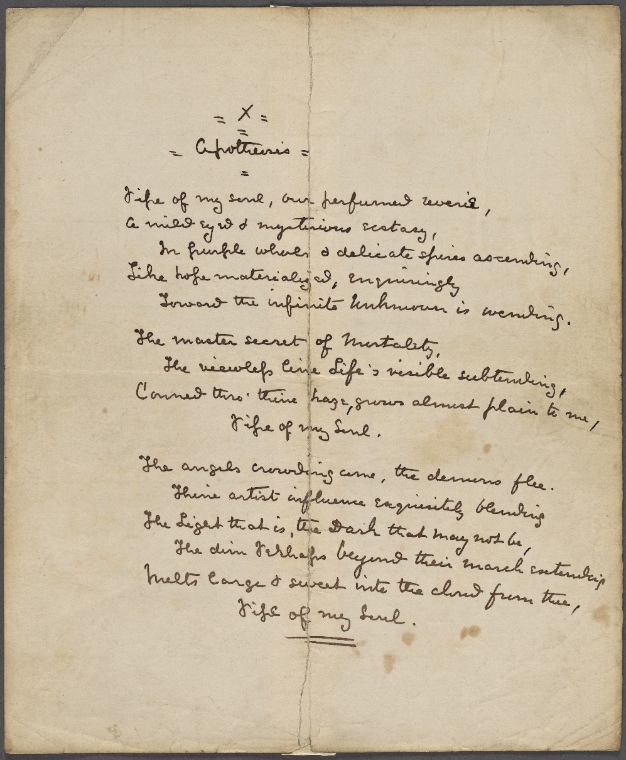 = X =
=
= Apotheosis =
=
Pipe of my soul, our perfumed reverie,
A mild eyed & mysterious ecstasy,
In purple whorls & delicate spires ascending,
Like hope materialized, enquiringly
Toward the infinite Unknown is wending.
The master secret of Mortality,
The viewless line Life's visible subtending,
Conned thro' thine haze, grows almost plain to me,
Pipe of my Soul.
The angels crowding come, the demons flee.
Thine artist influence exquisitely blending
The Light that is, the Dark that may not be,
The dim Perhaps beyond their march extending
Melts large & sweet into the cloud from thee,
Pipe of my Soul.